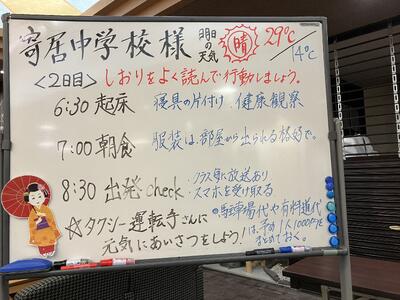 寄居中学校様
明日の天気
晴
29℃/14℃
<2日目> しおりをよく読んで行動しましょう。
6:30 起床 寝具の片付け、健康観察
7:00 朝食 服装は、部屋から出られる格好で。
8:30 出発check ・クラス毎に放送あり
・スマホを受け取る
☆タクシー運転手さんに
元気にあいさつをしよう!
●駐車場代や有料道代
は、予め1人1000円を
まとめておく。